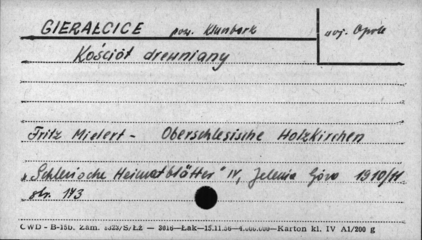 GIERAŁCICE pow. Klunbork woj. Opole
Kościół drewniany
Fritz Mielert - Oberschlesische Holzkirchen
"Schlesische Heimatblätter" IV, Jelenia Góra 1910/11
str. 173
CWD - B-15b. Zam. 3823/S/Łż — 3016—Łak—15.11.56—4.000.000—Karton kl. IV A1/200 g